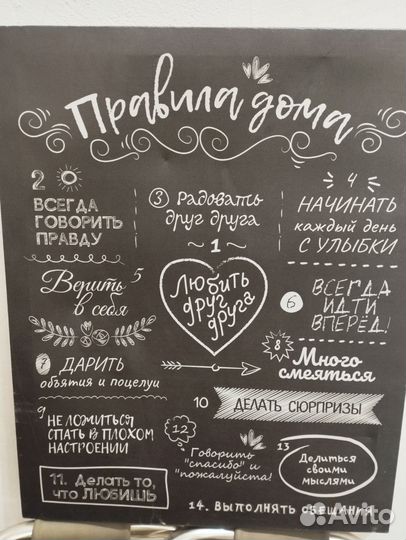 Правила дома
2
ВСЕГДА
ГОВОРИТЬ
ПРАВДУ
3 Радовать
друг друга
4
НАЧИНАТЬ
каждый день
С УЛЫБКИ
~ 1 ~
Любить
друг
друга
Верить 5
в себя
6
ВСЕГДА
ИДТИ
ВПЕРЁД!
7 ДАРИТЬ
объятия и поцелуи
8
Много
смеяться
9
НЕ ЛОЖИТЬСЯ
СПАТЬ В ПЛОХОМ
НАСТРОЕНИИ
10 ДЕЛАТЬ СЮРПРИЗЫ
11. Делать то,
что ЛЮБИШЬ
12
Говорить
"спасибо" и
"пожалуйста!"
13
Делиться
своими
мыслями
14. ВЫПОЛНЯТЬ ОБЕЩАНИЯ
Avito